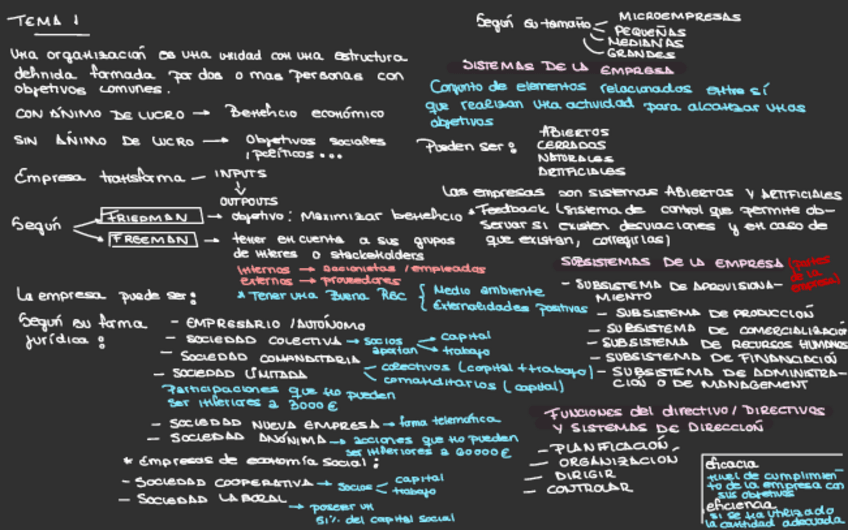 TEMA 1
Una organización es una unidad con una estructura
definida formada por dos o mas personas con
objetivos comunes.
CON ÁNIMO DE LUCRO → Beneficio económico
SIN ÁNIMO DE LUCRO → Objetivos sociales
, políticos...
Empresa transforma — INPUTS
↓
OUTPUTS
Según
FRIEDMAN → objetivo: Maximizar beneficio
FREEMAN → tener en cuenta a sus grupos
de interes o stackeholders
Internos → accionistas / empleados
externos → proveedores
* Tener una Buena RSC { Medio ambiente
Externalidades positivas
La empresa puede ser:
Según su forma
jurídica:
— EMPRESARIO / AUTÓNOMO
— SOCIEDAD COLECTIVA → socios
aportan
→ capital
→ trabajo
— SOCIEDAD COMANDITARIA
— colectivos (capital + trabajo)
— comanditarios (capital)
— SOCIEDAD LIMITADA
Participaciones que no pueden
ser inferiores a 3000 €
— SOCIEDAD NUEVA EMPRESA → forma telemática
— SOCIEDAD ANÓNIMA → acciones que no pueden
ser inferiores a 60000 €
* Empresas de economía social:
— SOCIEDAD COOPERATIVA → socios
→ capital
→ trabajo
— SOCIEDAD LABORAL
→ poseer un
51% del capital social
Según su tamaño
MICROEMPRESAS
PEQUEÑAS
MEDIANAS
GRANDES
SISTEMAS DE LA EMPRESA
Conjunto de elementos relacionados entre sí
que realizan una actividad para alcanzar unos
objetivos
Pueden ser:
ABIERTOS
CERRADOS
NATURALES
ARTIFICIALES
Las empresas son sistemas ABIERTOS Y ARTIFICIALES
* Feedback (sistema de control que permite ob-
servar si existen desviaciones y en caso de
que existan, corregirlas)
SUBSISTEMAS DE LA EMPRESA (partes
de la
empresa)
— SUBSISTEMA DE APROVISIONA-
MIENTO
— SUBSISTEMA DE PRODUCCIÓN
— SUBSISTEMA DE COMERCIALIZACIÓN
— SUBSISTEMA DE RECURSOS HUMANOS
— SUBSISTEMA DE FINANCIACIÓN
— SUBSISTEMA DE ADMINISTRA-
CIÓN O DE MANAGEMENT
FUNCIONES del directivo / DIRECTIVOS
Y SISTEMAS DE DIRECCIÓN
— PLANIFICACIÓN
— ORGANIZACIÓN
— DIRIGIR
— CONTROLAR
eficacia
nivel de cumplimien
to de la empresa con
sus objetivos
eficiencia
si se ha utilizado
la cantidad adecuada